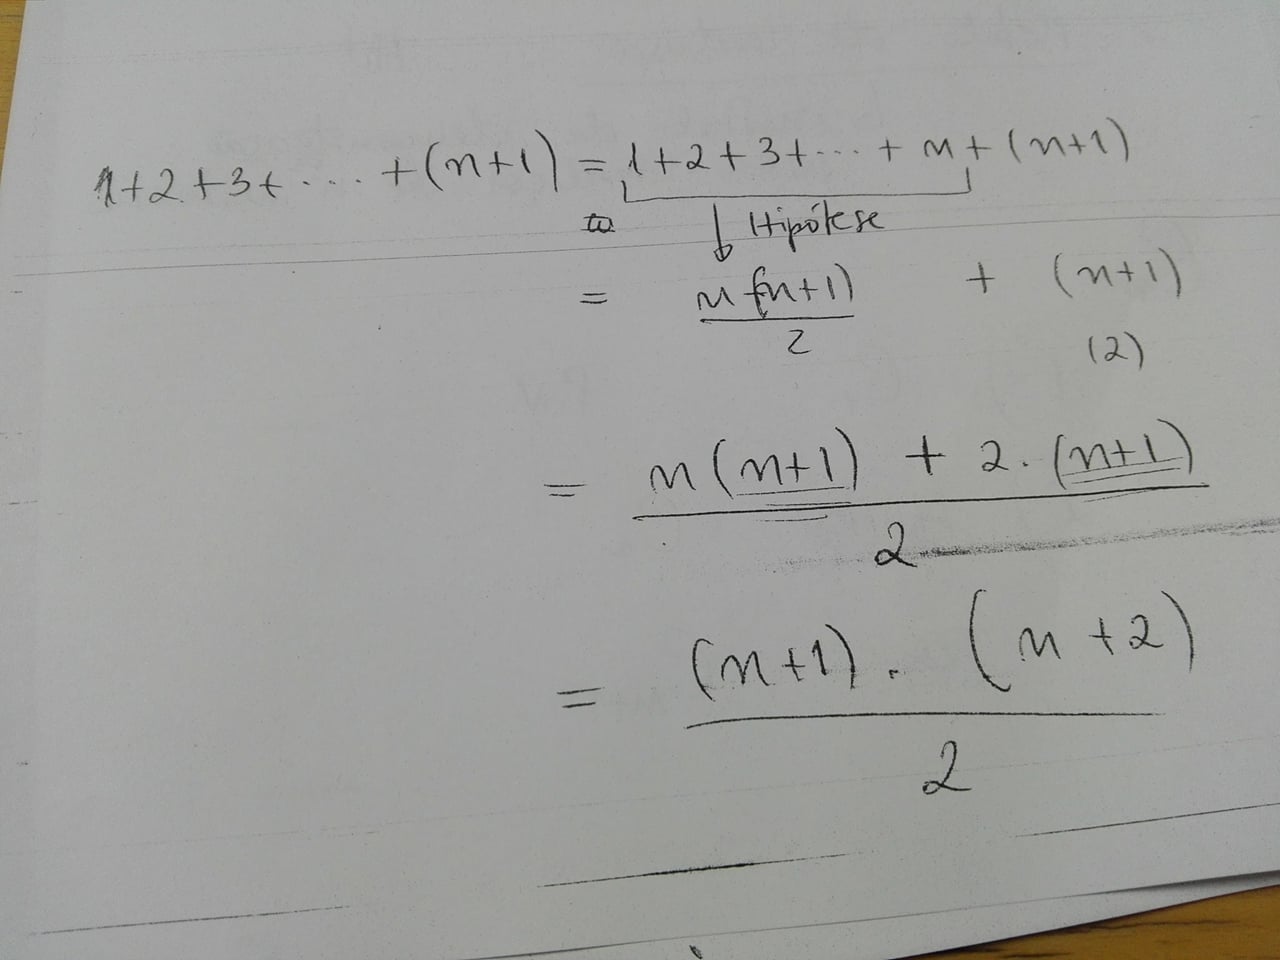 1+2+3+ ... +(n+1) = 1+2+3+ ... + n + (n+1)
Hipótese
= n(n+1)/2 + (n+1)
(2)
= n(n+1) + 2.(n+1)
2
= (n+1) . (n+2)
2